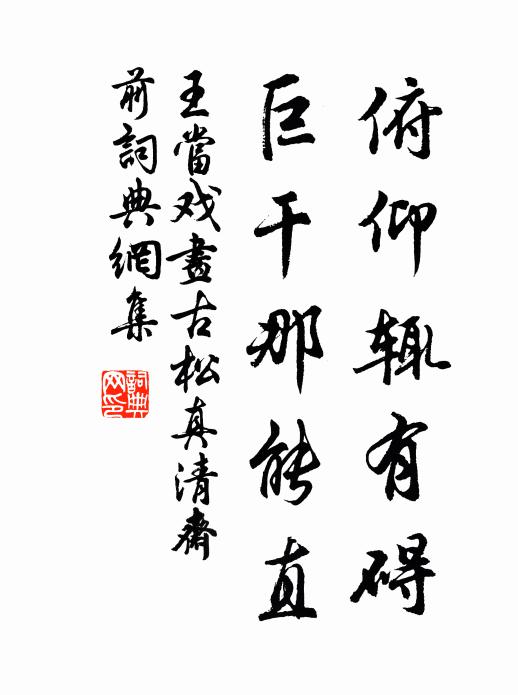 俯仰辄有碍
巨干那能直
王當戏畫古松真清齋
前詞典網集
詞典网印